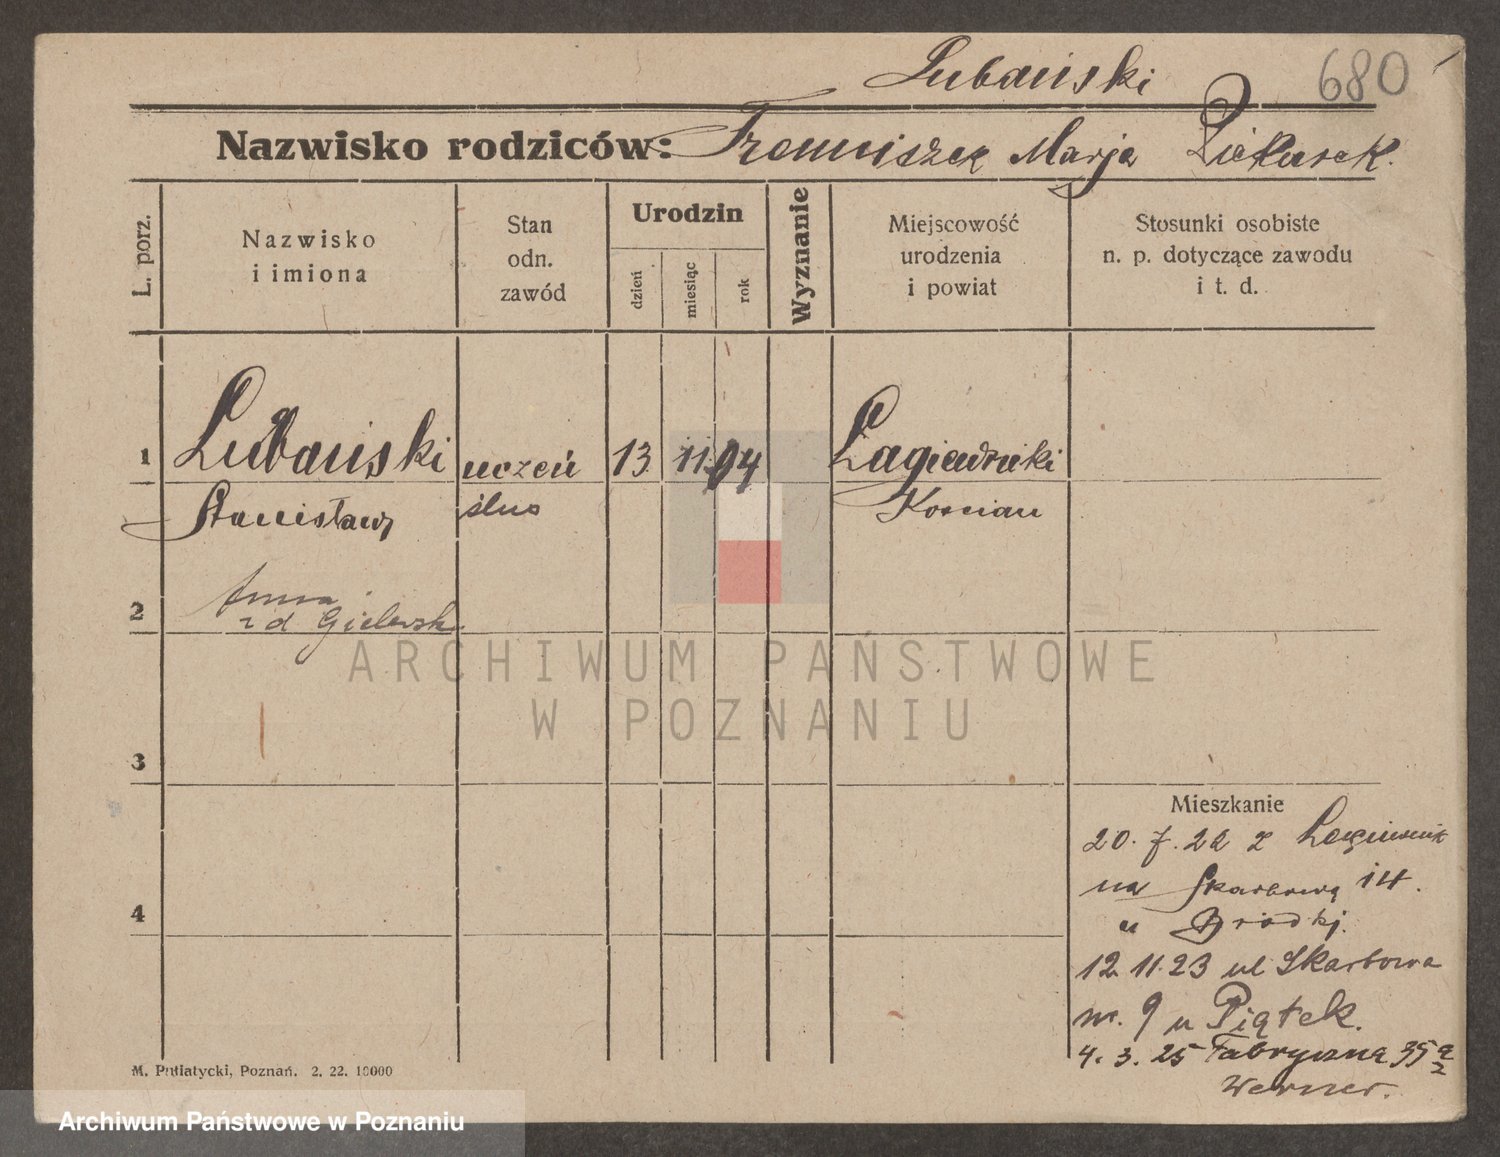 Lubański 680
Nazwisko rodziców: Franciszek Marja Piekarek.
L. porz.
Nazwisko
i imiona
Stan
odn.
zawód
Urodzin
dzień
miesiąc
rok
Wyznanie
Miejscowość
urodzenia
i powiat
Stosunki osobiste
n. p. dotyczące zawodu
i t. d.
1 Lubański uczeń 13 11. 04 Łagiewniki
Stanisław ślus Kościan
Anna
2 zd Gielewsk
3
4
Mieszkanie
20. 7. 22 z Łagiewnik
na Skarbową 14.
u Brodkj.
12. 11. 23 ul Skarbowa
nr. 9 u Piątek.
4. 3. 25 Fabryczna 35
Werner.
M. Putiatycki, Poznań. 2. 22. 10000
ARCHIWUM PAŃSTWOWE
W POZNANIU
Archiwum Państwowe w Poznaniu